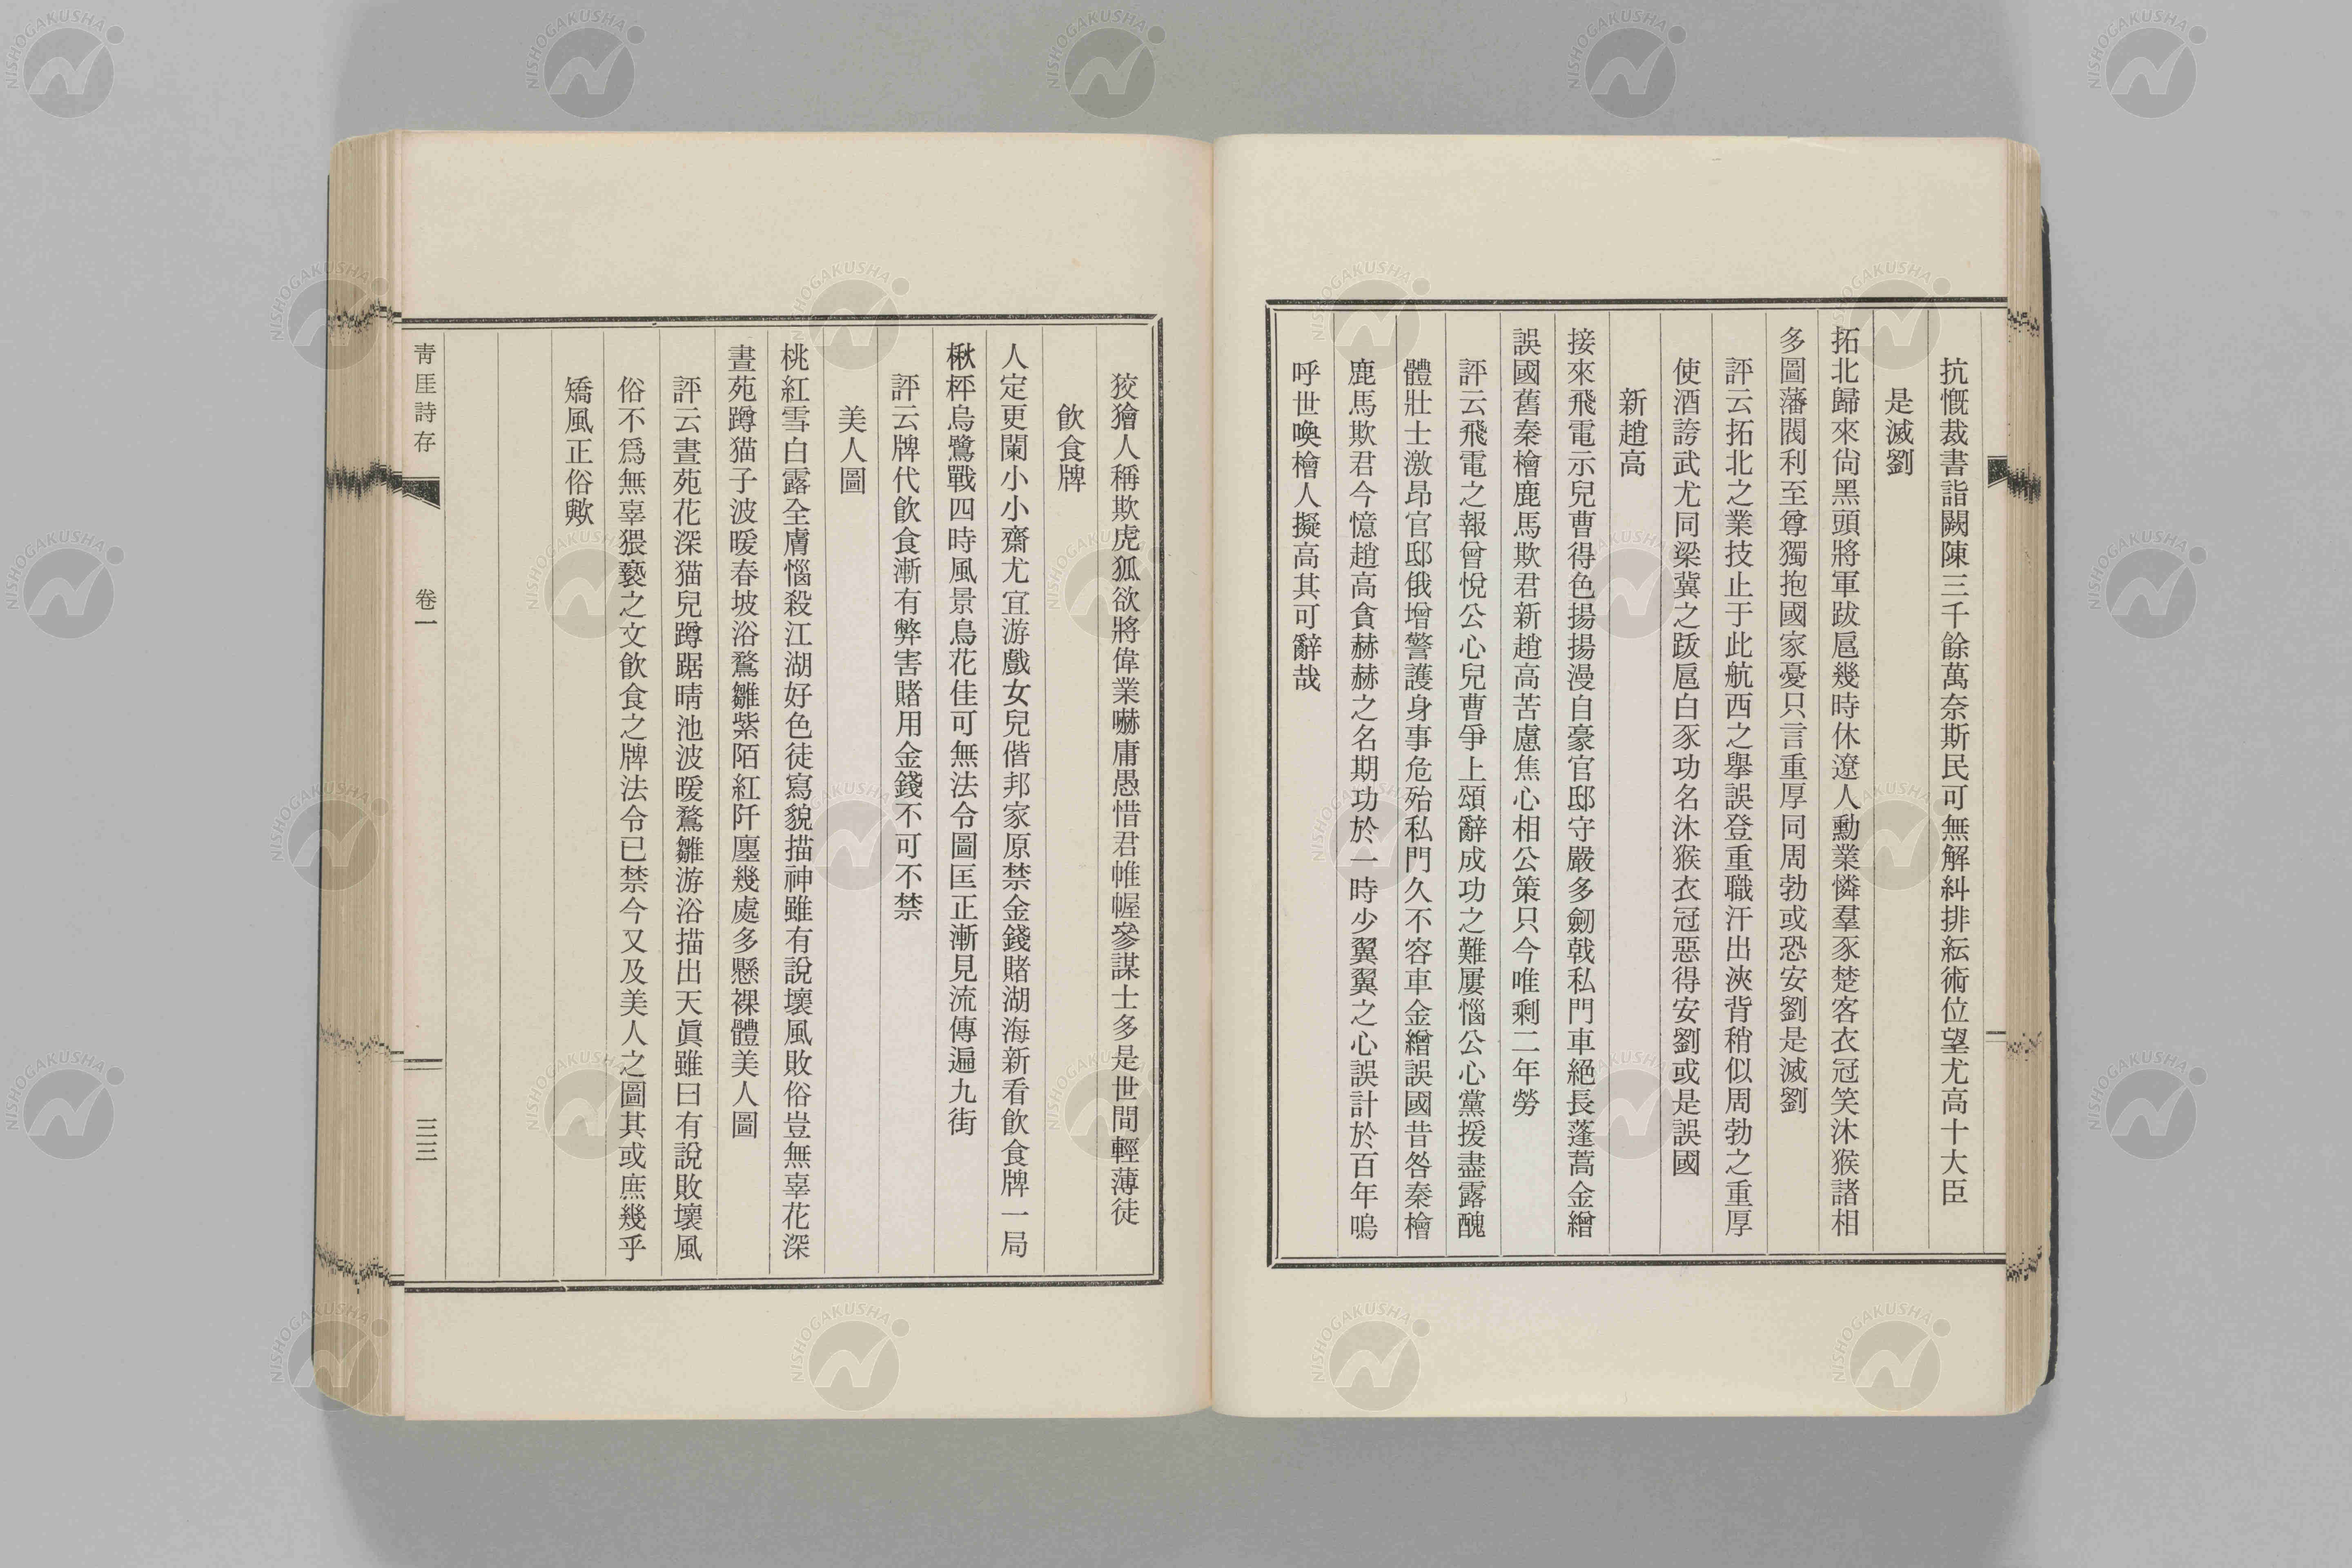 抗慨裁書詣闕陳三千餘萬奈斯民可無解糾排紜術位望尤高十大臣
是滅劉
拓北歸來尙黑頭將軍跋扈幾時休遼人勳業憐羣豕楚客衣冠笑沐猴諸相
多圖藩閥利至尊獨抱國家憂只言重厚同周勃或恐安劉是滅劉
評云拓北之業技止于此航西之擧誤登重職汗出浹背稍似周勃之重厚
使酒誇武尤同梁冀之跋扈白豕功名沐猴衣冠惡得安劉或是誤國
新趙高
接來飛電示兒曹得色揚揚漫自豪官邸守嚴多劒戟私門車絕長蓬蒿金繒
誤國舊秦檜鹿馬欺君新趙高苦慮焦心相公策只今唯剩二年勞
評云飛電之報曾悅公心兒曹爭上頌辭成功之難屢惱公心黨援盡露醜
體壯士激昂官邸俄增警護身事危殆私門久不容車金繒誤國昔咎秦檜
鹿馬欺君今憶趙高貪赫赫之名期功於一時少翼翼之心誤計於百年嗚
呼世喚檜人擬高其可辭哉
狡獪人稱欺虎狐欲將偉業嚇庸愚惜君帷幄參謀士多是世間輕薄徒
飮食牌
人定更闌小小齋尤宜游戲女兒偕邦家原禁金錢賭湖海新看飮食牌一局
楸枰烏鷺戰四時風景鳥花佳可無法令圖匡正漸見流傳遍九街
評云牌代飮食漸有弊害賭用金錢不可不禁
美人圖
桃紅雪白露全膚惱殺江湖好色徒寫貌描神雖有說壞風敗俗豈無辜花深
晝苑蹲猫子波暖春坡浴鶩雛紫陌紅阡廛幾處多懸裸體美人圖
評云晝苑花深猫兒蹲踞晴池波暖鶩雛游浴描出天眞雖曰有說敗壞風
俗不爲無辜猥褻之文飮食之牌法令已禁今又及美人之圖其或庶幾乎
矯風正俗歟
靑厓詩存
卷一
三三
NISHOGAKUSHA